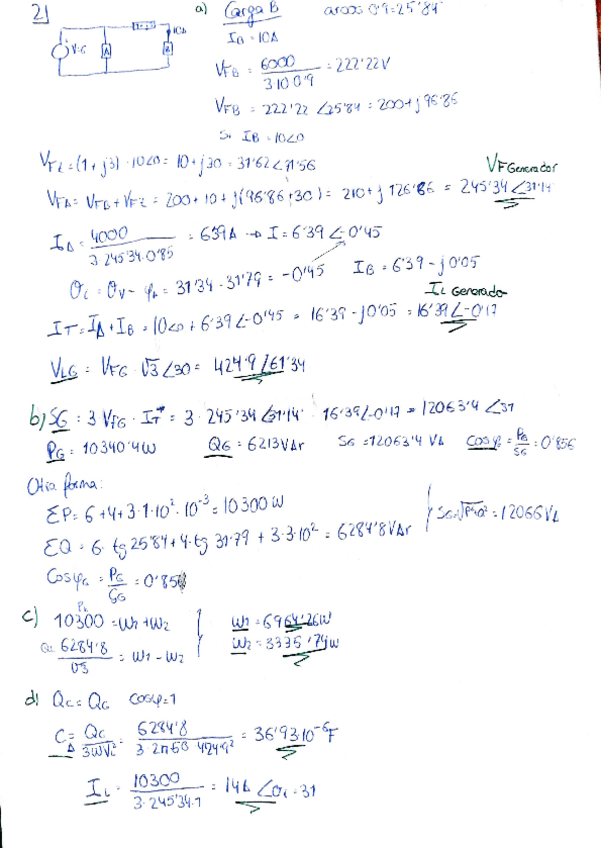 2)
a) Carga B arcos 0'9=25'84
1+3j 10A
V=G A B
IB = 10A
VFB = 6000 / 3·10·0'9 = 222'22V
VFB = 222'22 ∠25'84 = 200+j96'86
Si IB = 10∠0
VFZ = (1+j3)·10∠0 = 10+j30 = 31'62∠71'56
VF Generador
VFA = VFB+VFZ = 200+10+j(96'86+30) = 210+j126'86 = 245'34∠31'14
IA = 4000 / 3·245'34·0'85 = 6'39A → I = 6'39∠-0'45
θi = θv - φA = 31'34-31'79 = -0'45 IB = 6'39-j0'05
IL Generador
IT = IA+IB = 10∠0+6'39∠-0'45 = 16'39-j0'05 = 16'39∠-0'17
VLG = VFG·√3∠30 = 424'9/61'34
b) SG = 3 VFG · IT* = 3·245'34∠31'14 · 16'39∠-0'17 = 12063'4∠31
PG = 10340'4W QG = 6213VAr SG = 12063'4 VA cosφ = PG/SG = 0'856
Otra forma:
ΣP = 6+4+3·1·10²·10⁻³ = 10300W
ΣQ = 6·tg 25'84+4·tg 31'79+3·3·10² = 6284'8VAr
SG=√P²+Q² = 12066VA
Cosφ = PG/SG = 0'85
c) PG 10300 = W1+W2 W1 = 6964'26W
QG 6284'8/√3 = W1-W2 W2 = 3335'74W
d) QC = QG cosφ=1
CΔ = QC / 3WVL² = 6284'8 / 3·2π50·424'9² = 36'93·10⁻⁶F
IL = 10300 / 3·245'34·1 = 14A ∠θi = 31